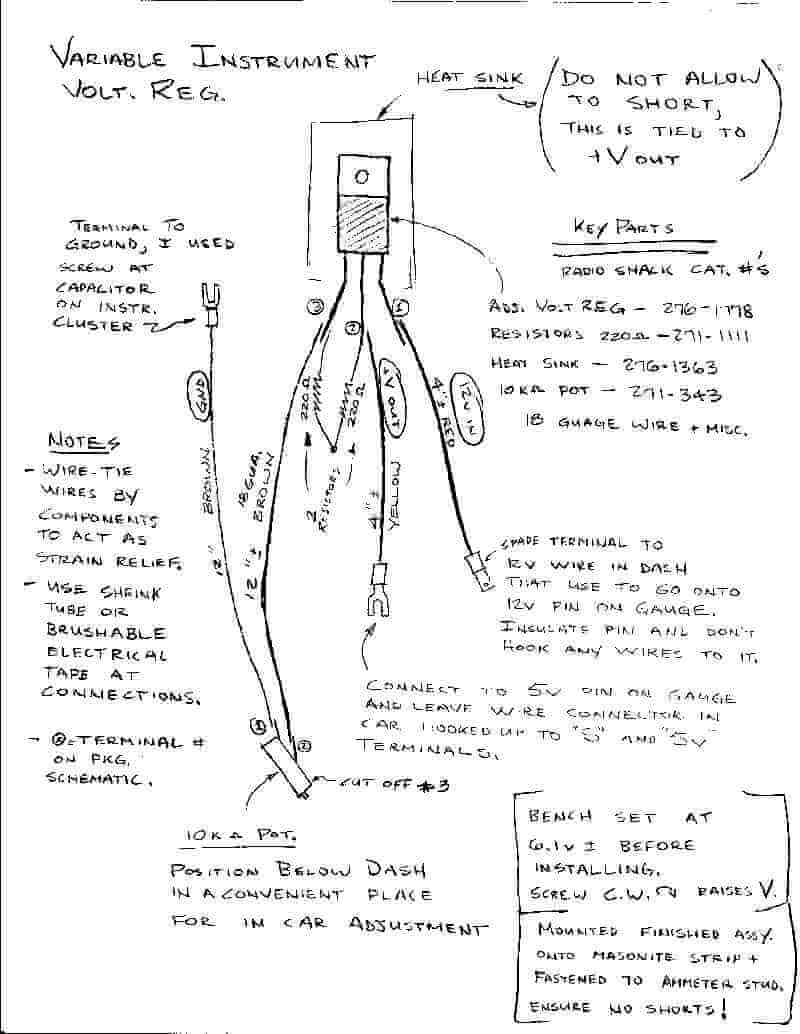 VARIABLE INSTRUMENT
VOLT. REG.
HEAT SINK
DO NOT ALLOW
TO SHORT,
THIS IS TIED TO
+V OUT
TERMINAL TO
GROUND, I USED
SCREW AT
CAPACITOR
ON INSTR.
CLUSTER
KEY PARTS
RADIO SHACK CAT. #'S
ADJ. VOLT REG - 276-1778
RESISTORS 220Ω - 271-1111
HEAT SINK - 276-1363
10KΩ POT - 271-343
18 GUAGE WIRE + MISC.
3
2
1
GND
220Ω
220Ω
+V OUT
12V IN
4"± RED
2 RESISTORS
12" BROWN
12"± 18 GUA. BROWN
4"± YELLOW
NOTES
- WIRE-TIE
WIRES BY
COMPONENTS
TO ACT AS
STRAIN RELIEF.
- USE SHRINK
TUBE OR
BRUSHABLE
ELECTRICAL
TAPE AT
CONNECTIONS.
- ②=TERMINAL #
ON PKG.
SCHEMATIC.
SPADE TERMINAL TO
12V WIRE IN DASH
THAT USE TO GO ONTO
12V PIN ON GAUGE.
INSULATE PIN AND DON'T
HOOK ANY WIRES TO IT.
CONNECT TO 5V PIN ON GAUGE
AND LEAVE WIRE CONNECTOR IN
CAR HOOKED UP TO "S" AND "5V"
TERMINALS.
1
2
CUT OFF #3
10KΩ POT.
POSITION BELOW DASH
IN A CONVENIENT PLACE
FOR IN CAR ADJUSTMENT
BENCH SET AT
6.1V ± BEFORE
INSTALLING.
SCREW C.W. RAISES V.
MOUNTED FINISHED ASSY.
ONTO MASONITE STRIP +
FASTENED TO AMMETER STUD.
ENSURE NO SHORTS!